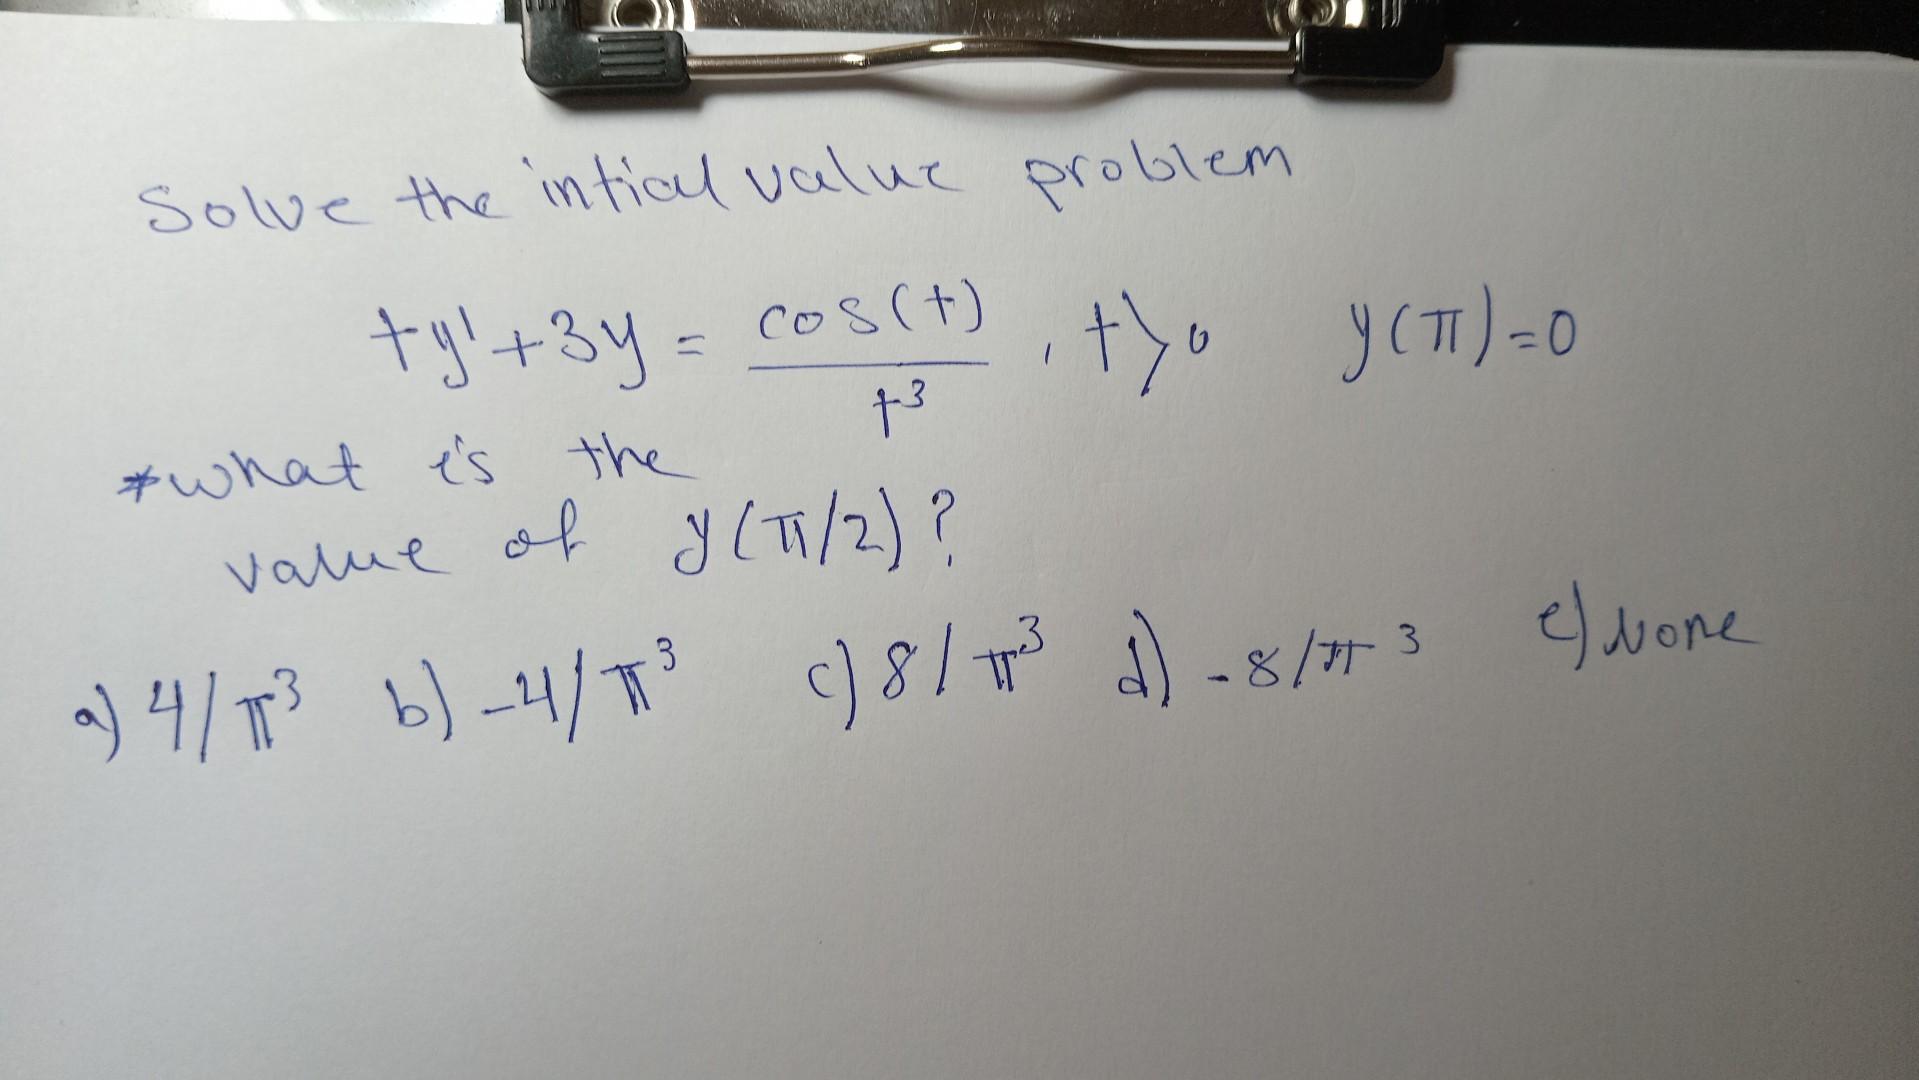 Solve the intial value problem
ty'+3y = cos(t)/t³ , t>0 y(π)=0
*what is the
value of y(π/2)?
a) 4/π³ b) -4/π³ c) 8/π³ d) -8/π³ e) None